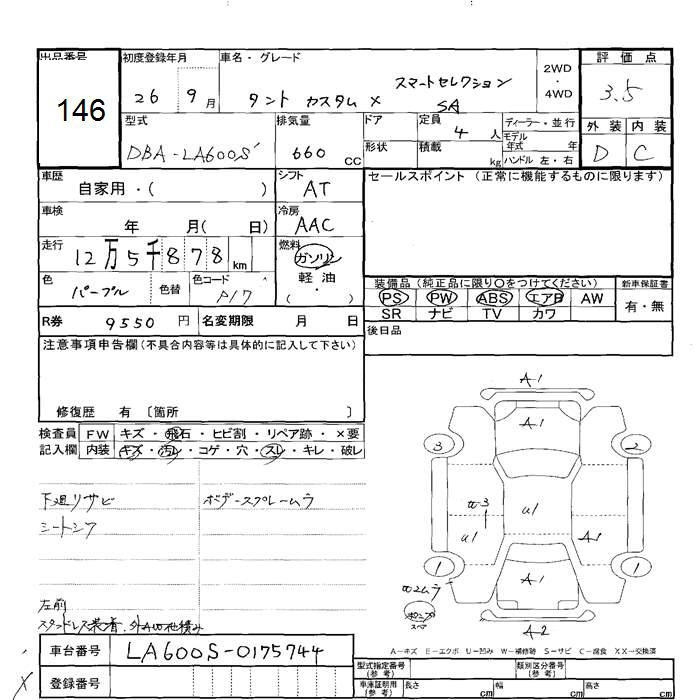 出品番号
146
初度登録年月
26 9月
車名・グレード
タント カスタム X スマートセレクション
SA
2WD
・
4WD
評価点
3.5
外装 内装
D C
型式
DBA-LA600S
排気量
660 CC
ドア
形状
定員
4 人
積載
kg
ディーラー・並行
モデル
年式 年
ハンドル 左・右
車歴
自家用・( )
シフト
AT
セールスポイント (正常に機能するものに限ります)
車検
年 月( 日)
冷房
AAC
走行
12万5千878 km
燃料
ガソリン
軽油
( ・ )
色
パープル
色替
色コード
P17
装備品 (純正品に限り○をつけてください)
新車保証書
PS PW ABS エアB AW
有・無
SR ナビ TV カワ
R券 9550 円 名変期限 月 日
後日品
注意事項申告欄 (不具合内容等は具体的に記入して下さい)
修復歴 有 〔箇所 〕
検査員
記入欄
FW キズ・飛石・ヒビ割・リペア跡・×要
内装 キズ・汚レ・コゲ・穴・スレ・キレ・破レ
下廻リサビ
シートシワ
ボデースプレームラ
左前
スタッドレス装着
A1
A1
3
2
W3
U1
U1
A1
1
1
A1
A2
ムラ
スペア
A-キズ E-エクボ U-凹み W-補修跡 S-サビ C-腐食 XX-交換済
車台番号 LA600S-0175744
登録番号
型式指定番号
(参考)
類別区分番号
(参考)
車庫証明用
(参考)
長さ cm 幅 cm 高さ cm